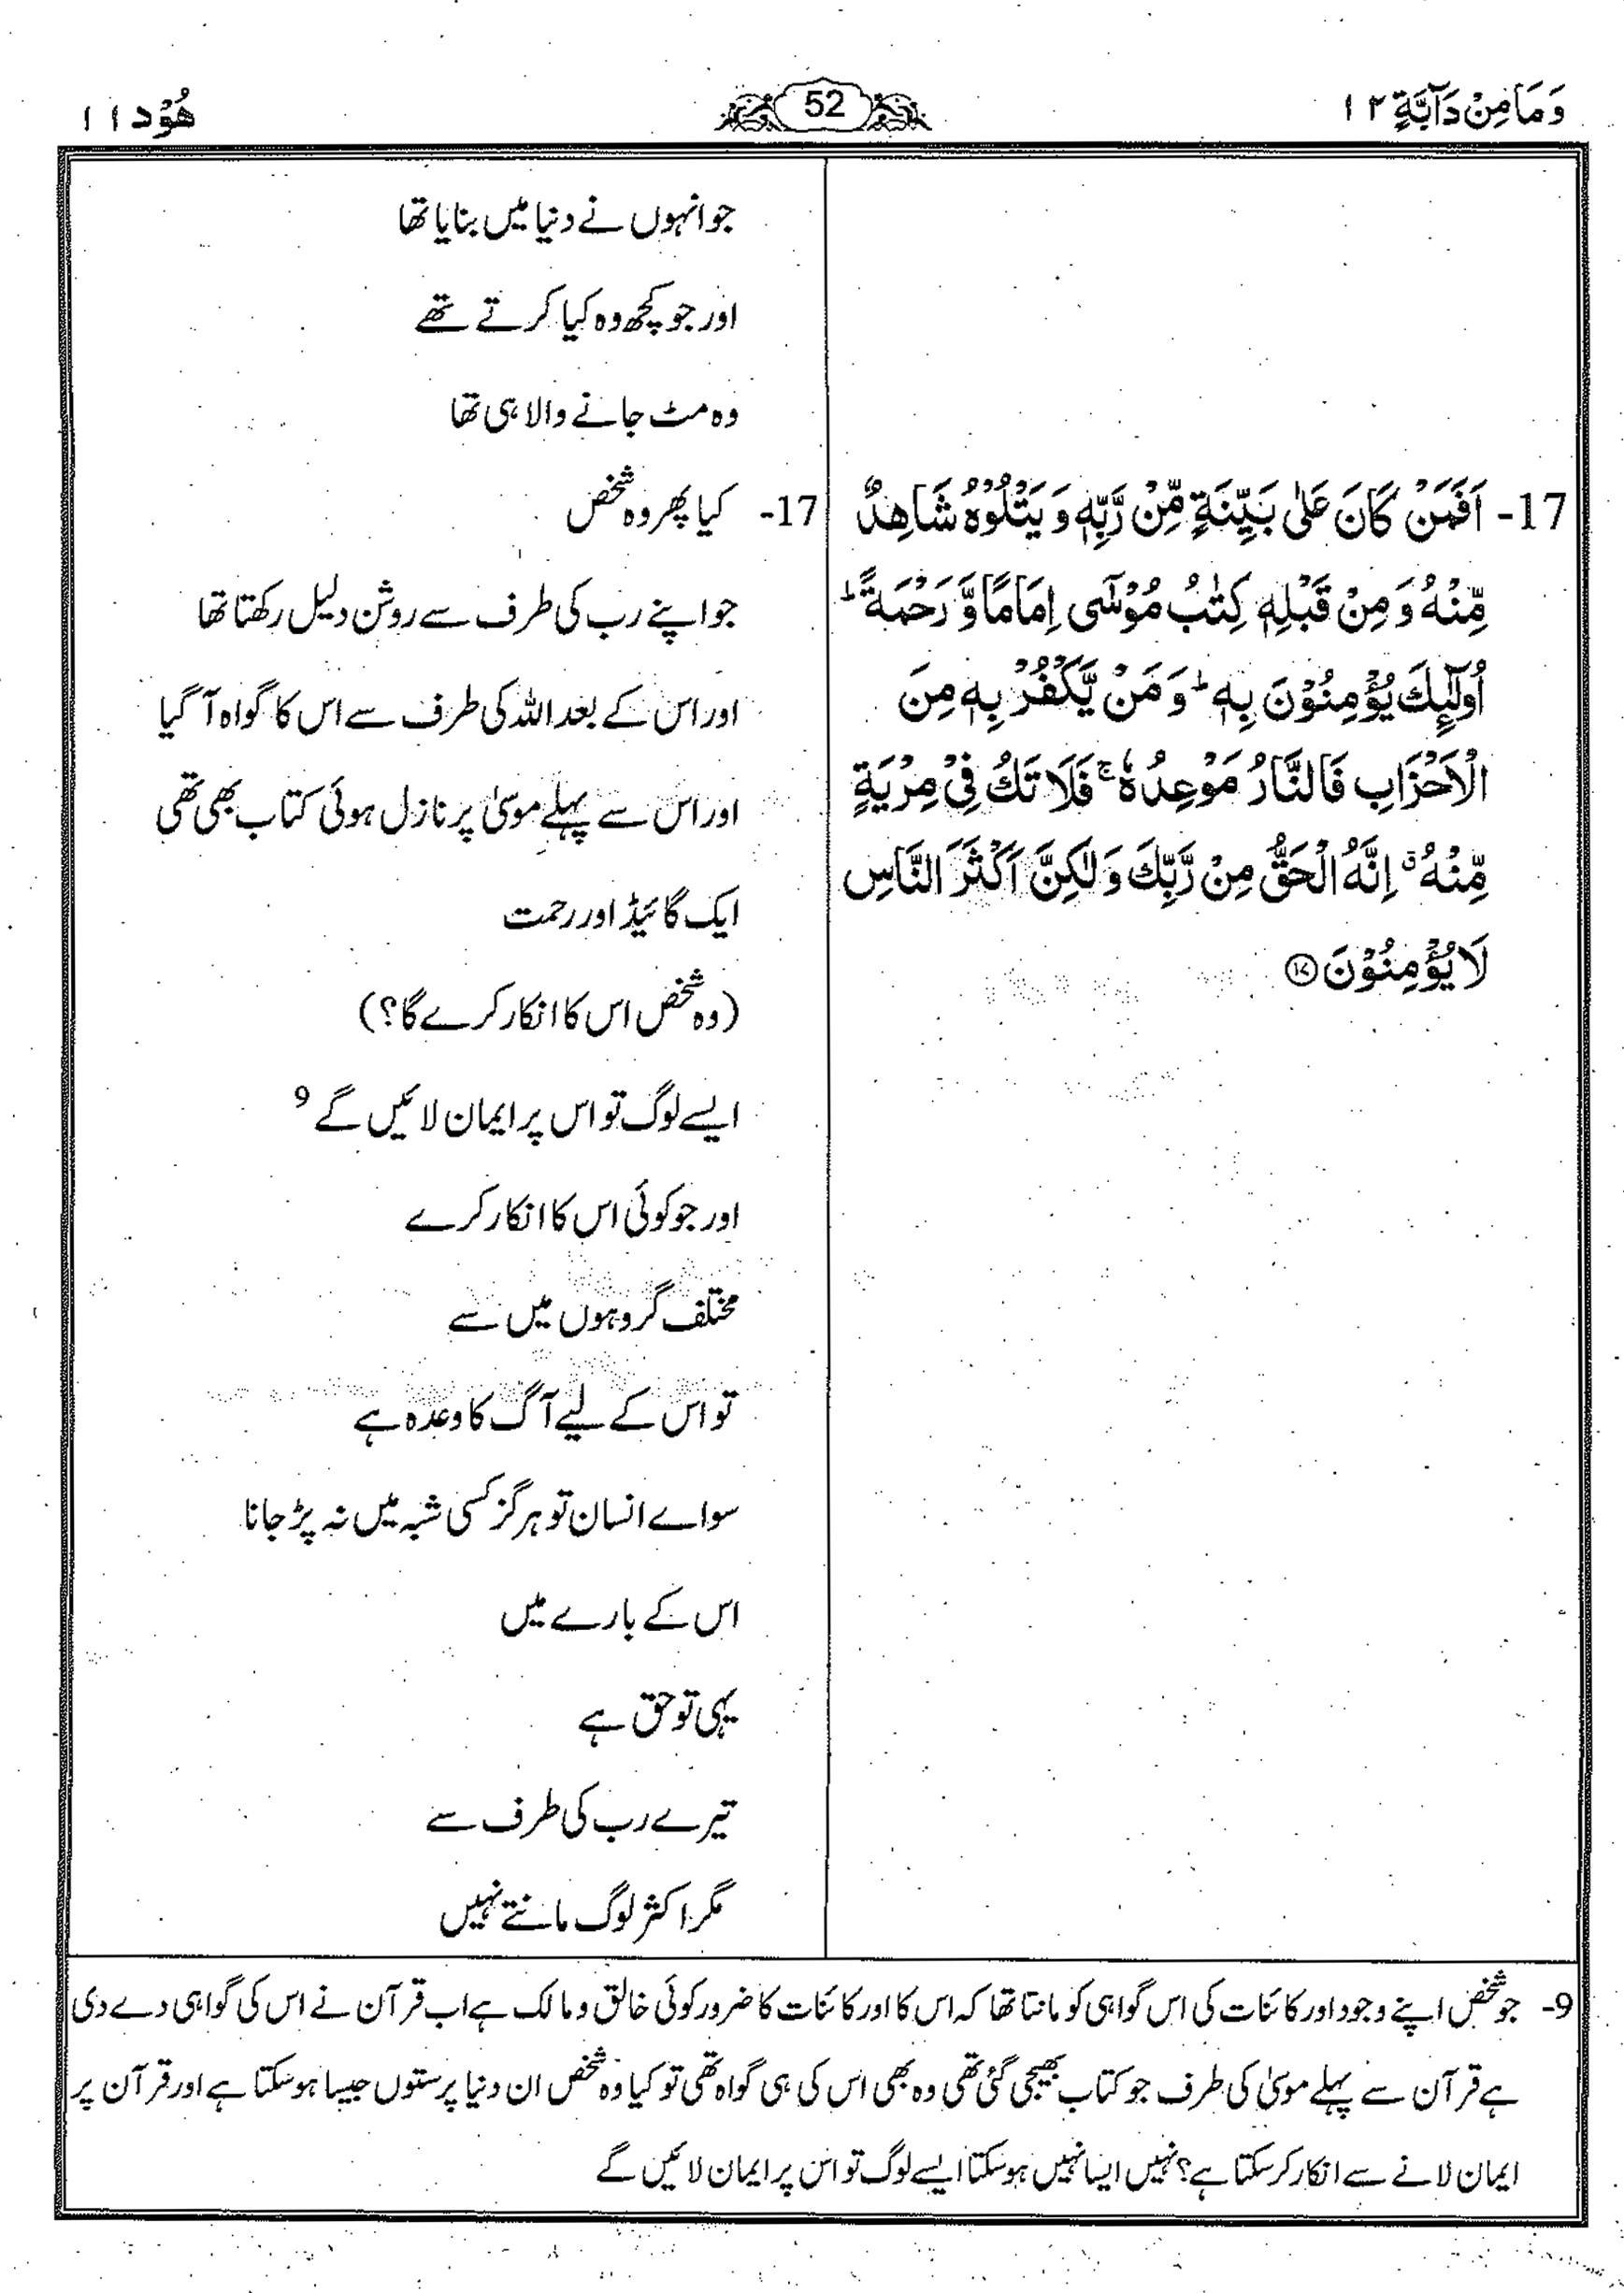 وَمَا مِنْ دَآبَّةٍ ۱۲
52
هُوْد ۱۱
17- اَفَمَنْ كَانَ عَلٰى بَيِّنَةٍ مِّنْ رَّبِّهٖ وَيَتْلُوْهُ شَاهِدٌ
مِّنْهُ وَمِنْ قَبْلِهٖ كِتٰبُ مُوْسٰٓى اِمَامًا وَّرَحْمَةً ؕ
اُولٰٓئِكَ يُؤْمِنُوْنَ بِهٖ ؕ وَمَنْ يَّكْفُرْ بِهٖ مِنَ
الْاَحْزَابِ فَالنَّارُ مَوْعِدُهٗ ۚ فَلَا تَكُ فِيْ مِرْيَةٍ
مِّنْهُ ۗ اِنَّهُ الْحَقُّ مِنْ رَّبِّكَ وَلٰكِنَّ اَكْثَرَ النَّاسِ
لَا يُؤْمِنُوْنَ ۝۱۷
جو انہوں نے دنیا میں بنایا تھا
اور جو کچھ وہ کیا کرتے تھے
وہ مٹ جانے والا ہی تھا
17- کیا پھر وہ شخص
جو اپنے رب کی طرف سے روشن دلیل رکھتا تھا
اور اس کے بعد اللہ کی طرف سے اس کا گواہ آ گیا
اور اس سے پہلے موسیٰ پر نازل ہوئی کتاب بھی تھی
ایک گائیڈ اور رحمت
(وہ شخص اس کا انکار کرے گا؟)
ایسے لوگ تو اس پر ایمان لائیں گے 9
اور جو کوئی اس کا انکار کرے
مختلف گروہوں میں سے
تو اس کے لیے آگ کا وعدہ ہے
سو اے انسان تو ہرگز کسی شبہ میں نہ پڑ جانا
اس کے بارے میں
یہی تو حق ہے
تیرے رب کی طرف سے
مگر اکثر لوگ مانتے نہیں
9- جو شخص اپنے وجود اور کائنات کی اس گواہی کو مانتا تھا کہ اس کا اور کائنات کا ضرور کوئی خالق و مالک ہے اب قرآن نے اس کی گواہی دے دی
ہے قرآن سے پہلے موسیٰ کی طرف جو کتاب بھیجی گئی تھی وہ بھی اس کی ہی گواہ تھی تو کیا وہ شخص ان دنیا پرستوں جیسا ہو سکتا ہے اور قرآن پر
ایمان لانے سے انکار کر سکتا ہے؟ نہیں ایسا نہیں ہو سکتا ایسے لوگ تو اس پر ایمان لائیں گے